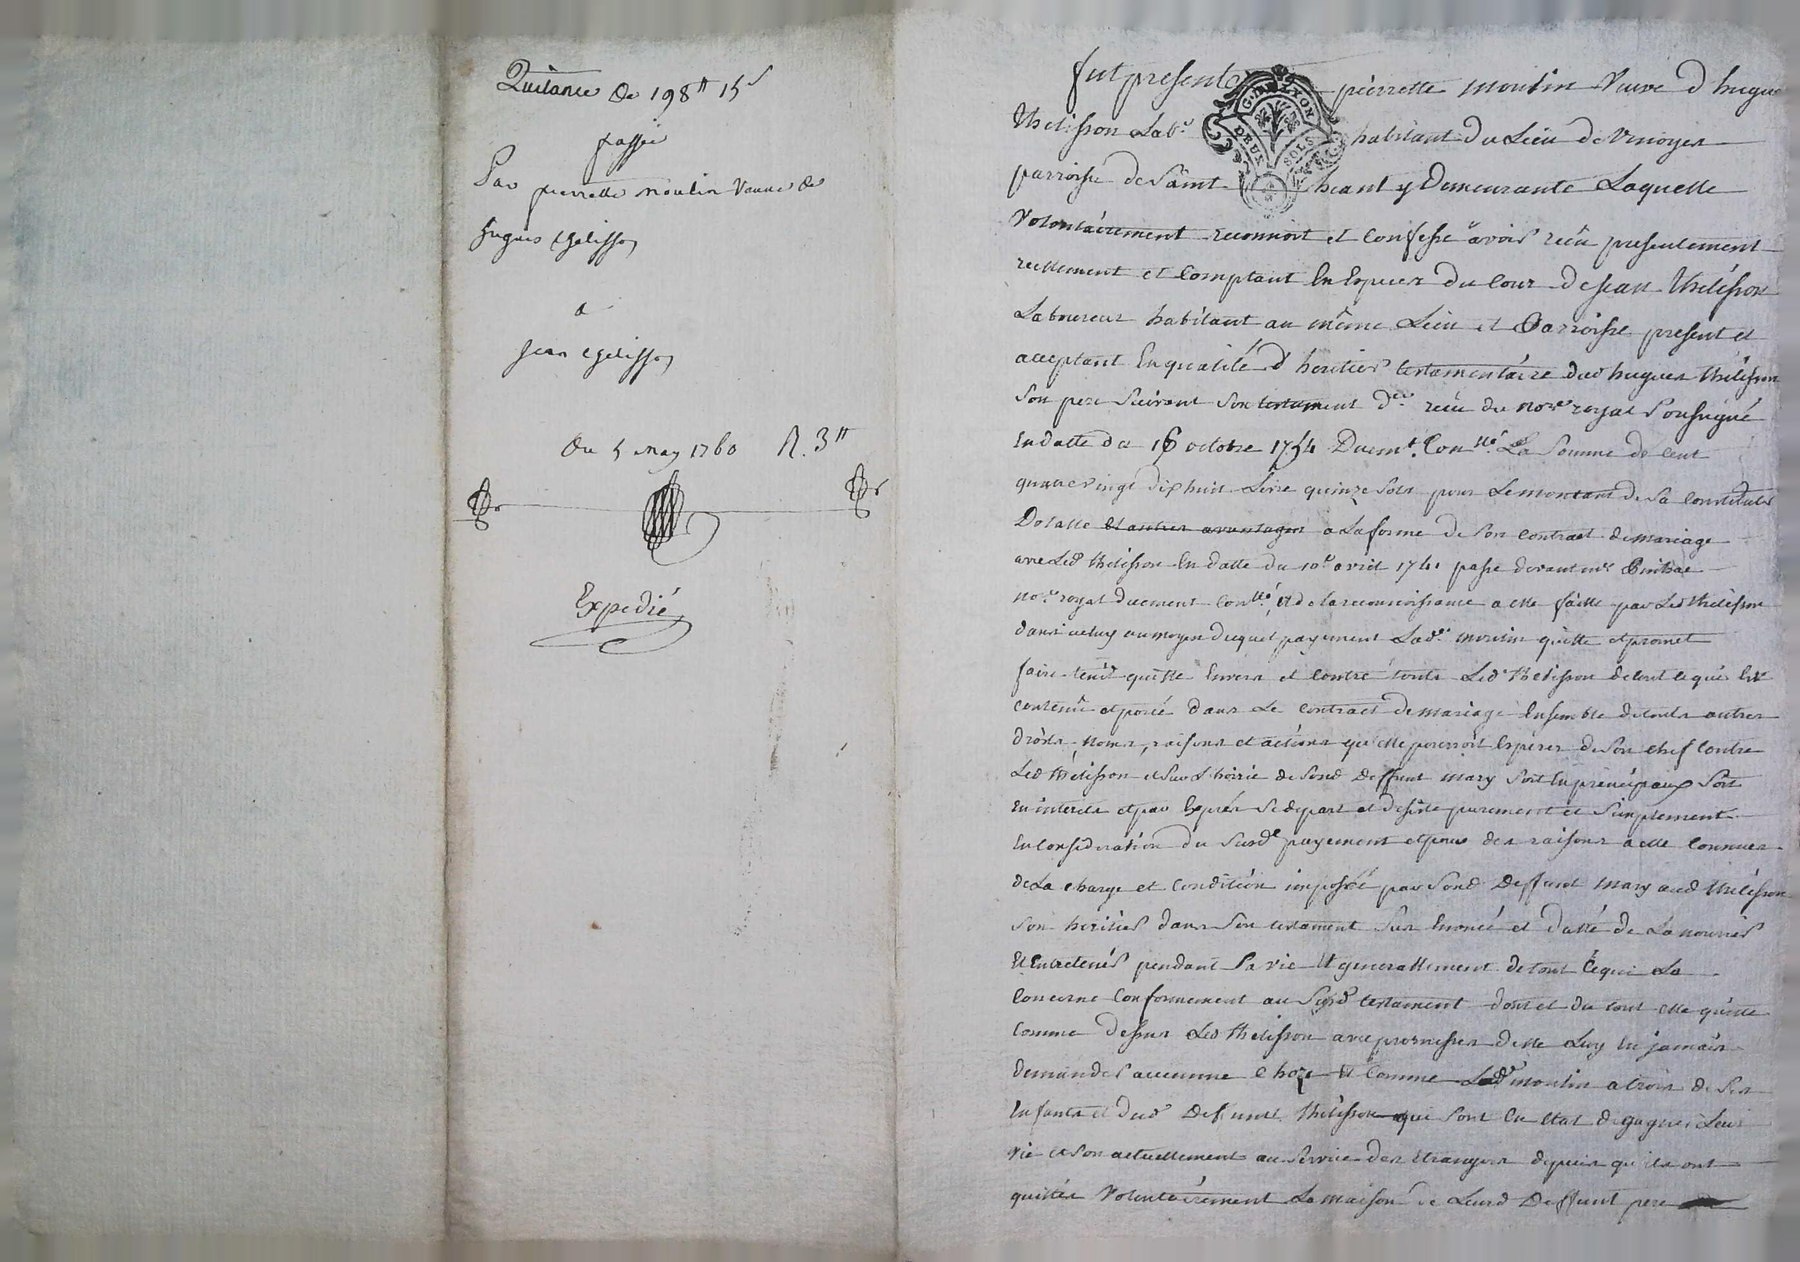 Quitance de 198# 15s
passée
Par pierrette moulin veuve de
hugues thelisson
a
jean thelisson
du 5 may 1760 R. 3#
Expedié
fut presente pierrette moulin veuve d hugue
thelisson Labr habitant du Lieu de
parroisse de Saint heant y Demeurante Laquelle
volontairement reconnoit et confesse avoir recû presentement
reellement et comptant en especes du cour de jean thelisson
Laboureur habitant au même Lieu et parroisse present et
acceptant en qualité d heritier testamentaire dud hugues thelisson
son pere suivant son testament recu du nore royal soussigné
en datte du 16 octobre 1754 Duemt. Conllé. La somme de cent
quatre vingt dix huit Livre quinze sols pour Le montant de sa constitution
Dotalle et autres avantages a La forme de son contract de mariage
avec Led thelisson en datte du 10e avril 1741 passé devant me
nore royal duement conllé, et de la reconnoissance a elle faitte par Led thelisson
dans icelluy au moyen duquel payement Lade. moulin quitte et promet
faire tenir quitte envers et contre touts Led thelisson de tout ce qui est
contenû et porté dans Le contract de mariage ensemble de touts autres
droits, noms, raisons et actions qu elle pourroit esperer de son chef contre
Led thelisson et sur L hoirie de sond Deffunt mary soit en principaux soit
en interets et par exprés se depart et desiste purement et simplement
en consideration du susd payement et pour des raisons a elle connues
de La charge et condition imposée par sond Deffunt mary aud thelisson
son heritier dans son testament sus enoncé et datté de La nourrir
et entretenir pendant sa vie et generallement de tout ce qui La
concerne conformement au susd testament dont et du tout elle quitte
comme dessus Led thelisson avec promesses de ne Luy en jamais
demander aucunne choze et comme Lade moulin a trois de ses
enfants et dud Defunt thelisson qui sont en etat de gagner Leur
vie et son actuellement au service des etrangers depuis qu ils ont
quittés volontairement La maison de Leurd Deffunt pere
G. DE LYON
DEUX SOLS